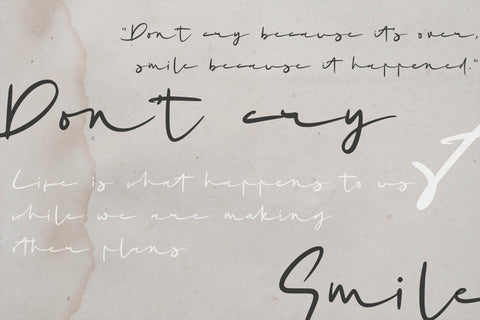 "Don't cry because its over,
smile because it happened."
Don't cry
Life is what happens to us
while we are making
other plans
Smile